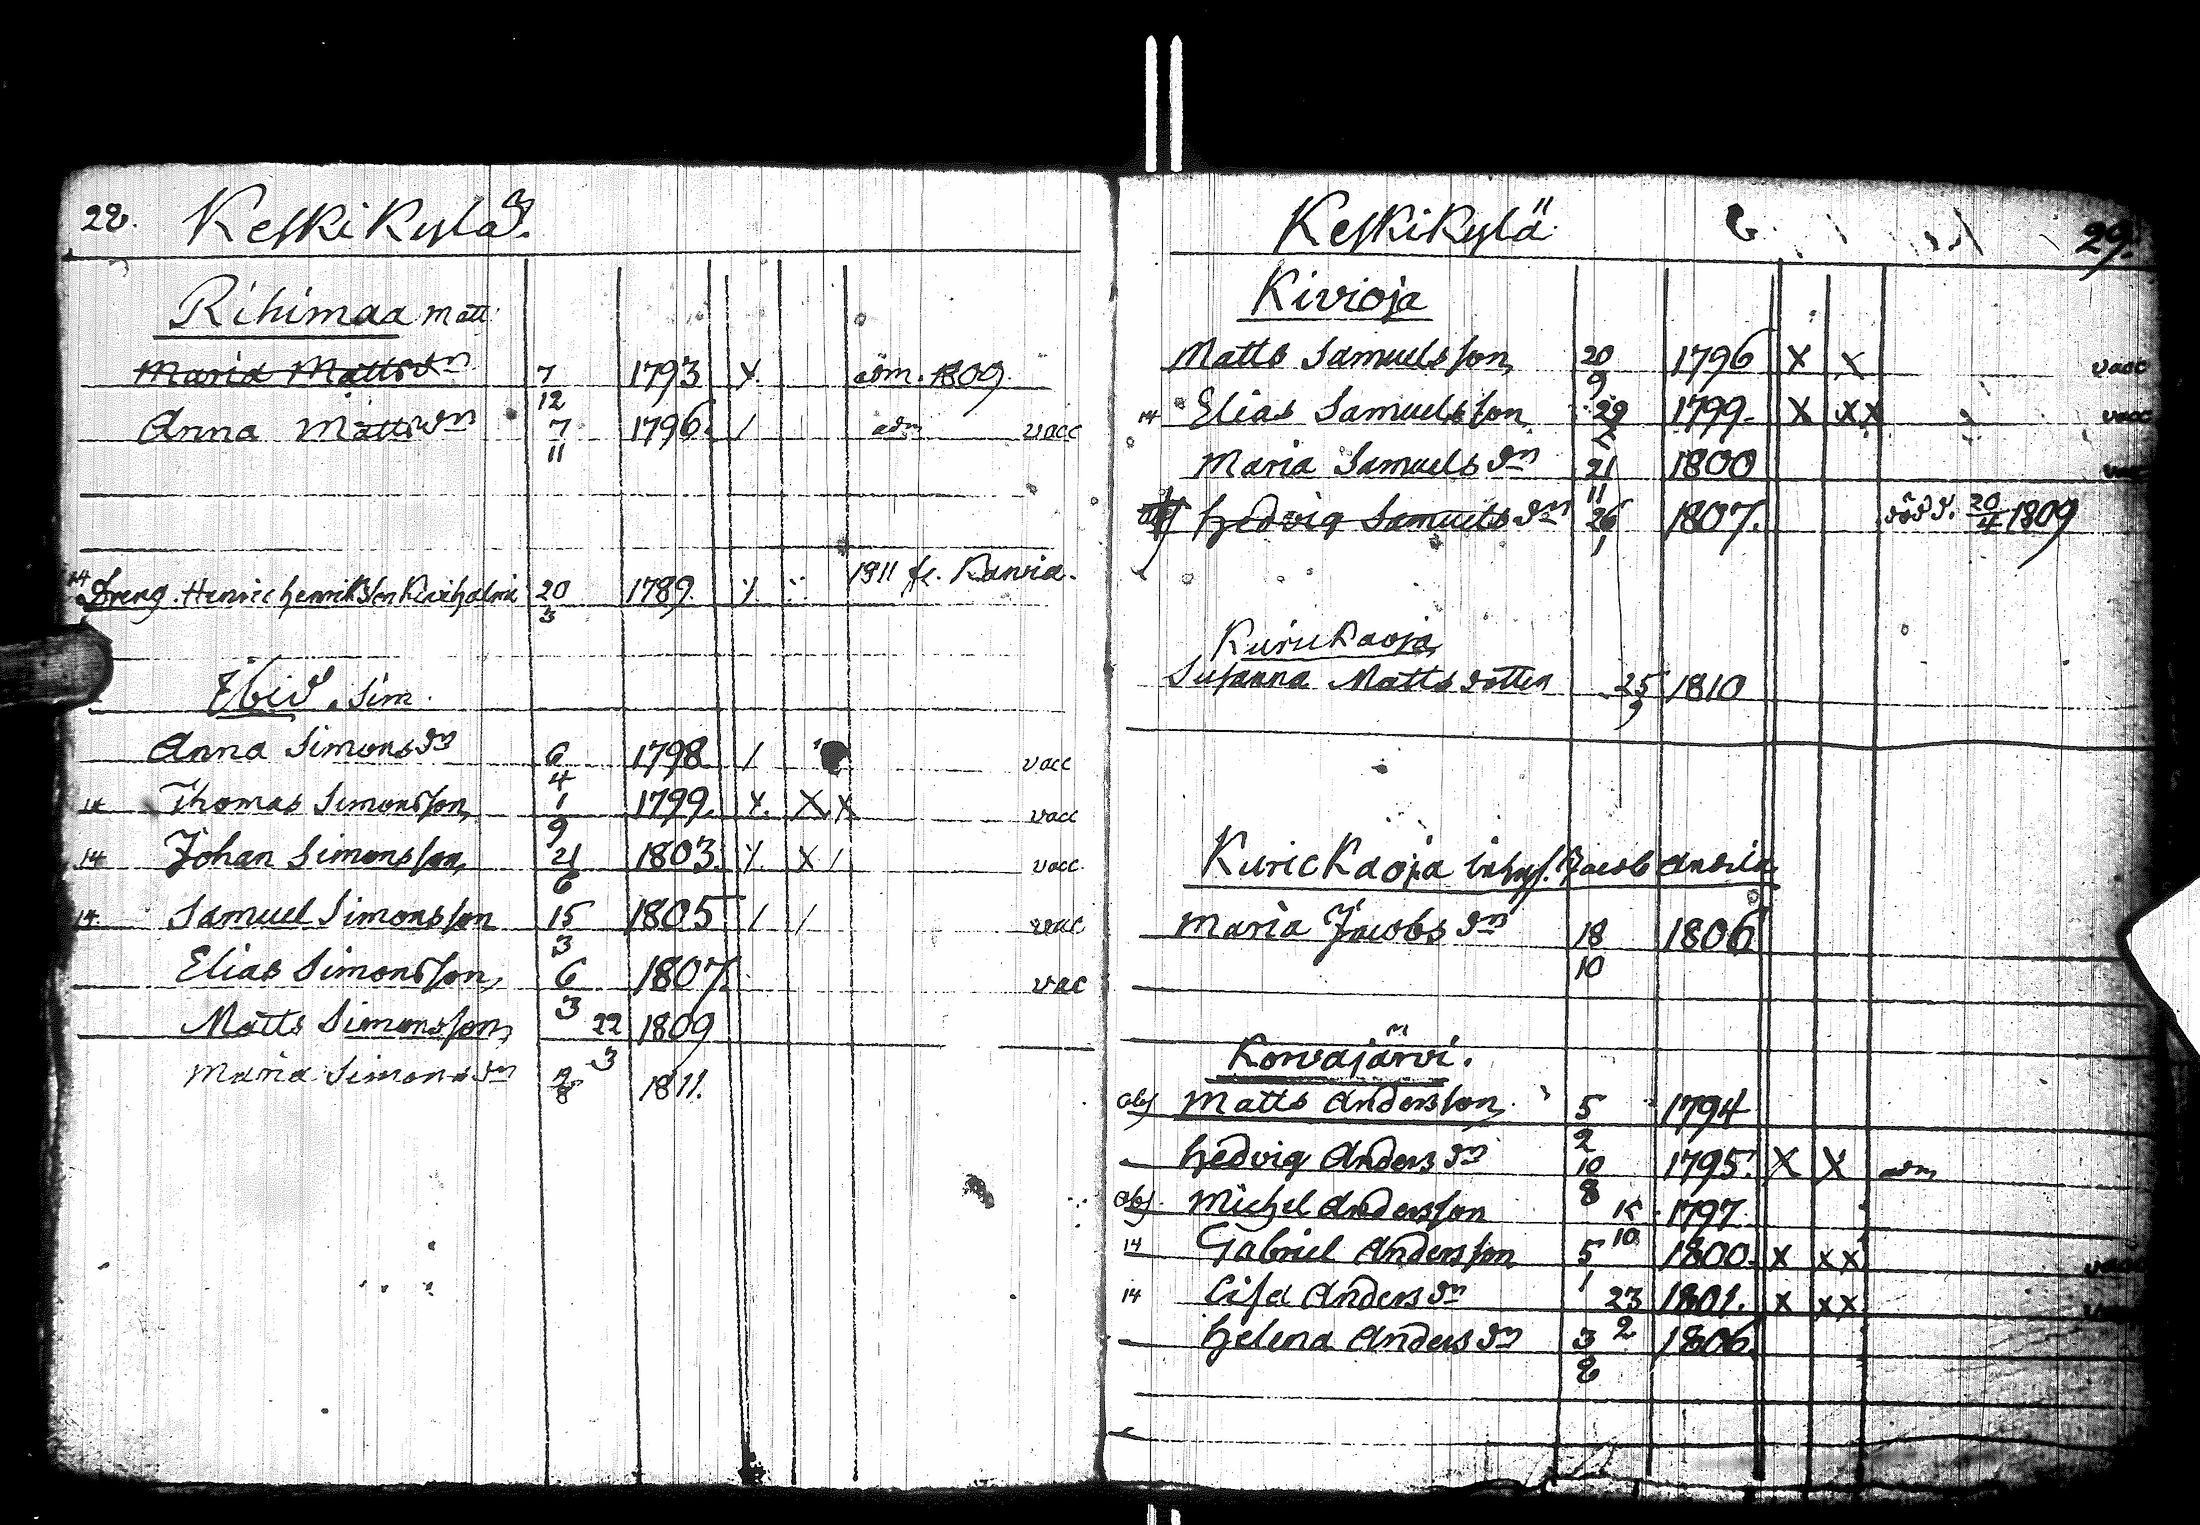 28. Keskikylä.
Rihimaa matt:
Maria Mattsdr 7/12 1793 x. adm. 1809.
Anna Mattsdr 7/11 1796. / adm vacc
1911 fr.
14 Dreng. Henric Henriksson 20/3 1789. x.
Ibid. Sim.
Anna Simonsdr 6/4 1798 / vacc
14 Thomas Simonsson 1/9 1799. x. X X vacc
14 Johan Simonsson 21/6 1803. x. X / vacc
14. Samuel Simonsson 15/3 1805 / / vac
Elias Simonsson 6/3 1807. vac
Matts Simonsson 22/3 1809
Maria Simonsdr 2/8 1811.
Keskikylä 29.
Kivioja
Matts Samuelsson 20/9 1796 X X vacc
14 Elias Samuelsson 29 1799. X X X vacc
Maria Samuelsdr 21/11 1800 vac
Hedvig Samuelsdr 26/1 1807. död d. 20/4 1809
Kurickaoja
Susanna Mattsdotter 25/9 1810
Kurickaoja inhys. Jacob
Maria Jacobsdr 18/10 1806
Korvajärvi.
obs Matts Andersson 5/2 1794
Hedvig Andersdr 10/8 1795. X X adm
obs. Michel Andersson 15/10 1797
14 Gabriel Andersson 5/1 1800. X X X vacc
14 Lisa Andersdr 23/2 1801. X X X
Helena Andersdr 3/8 1806.